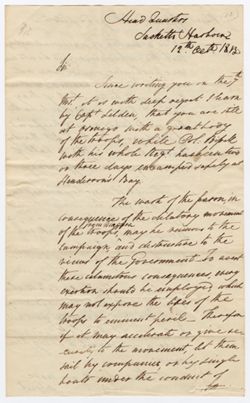 Head Quarters
Sacketts Harbour
12th Octr. 1813
Sir
Since writing you on the 7th
Inst. it is with deep regret I learn
by Capt. Selden, that you are still
at Oswego with a great body
of the troops, while Col. with his whole Regt. has been two
or three days encamped safely at
Henderson's Bay.
The want of the force, in
consequence of the dilatory movement
of the troops, may be ruinous to the
Campaign, and destructive to the
views of the Government. To avert
these calamitous consequences every
exertion should be employed which
may not expose the lives of the
troops to imminent peril. Therefore
if it may accelerate or give
to the movement, let them
sail by companies, or by single
boats under the conduct of